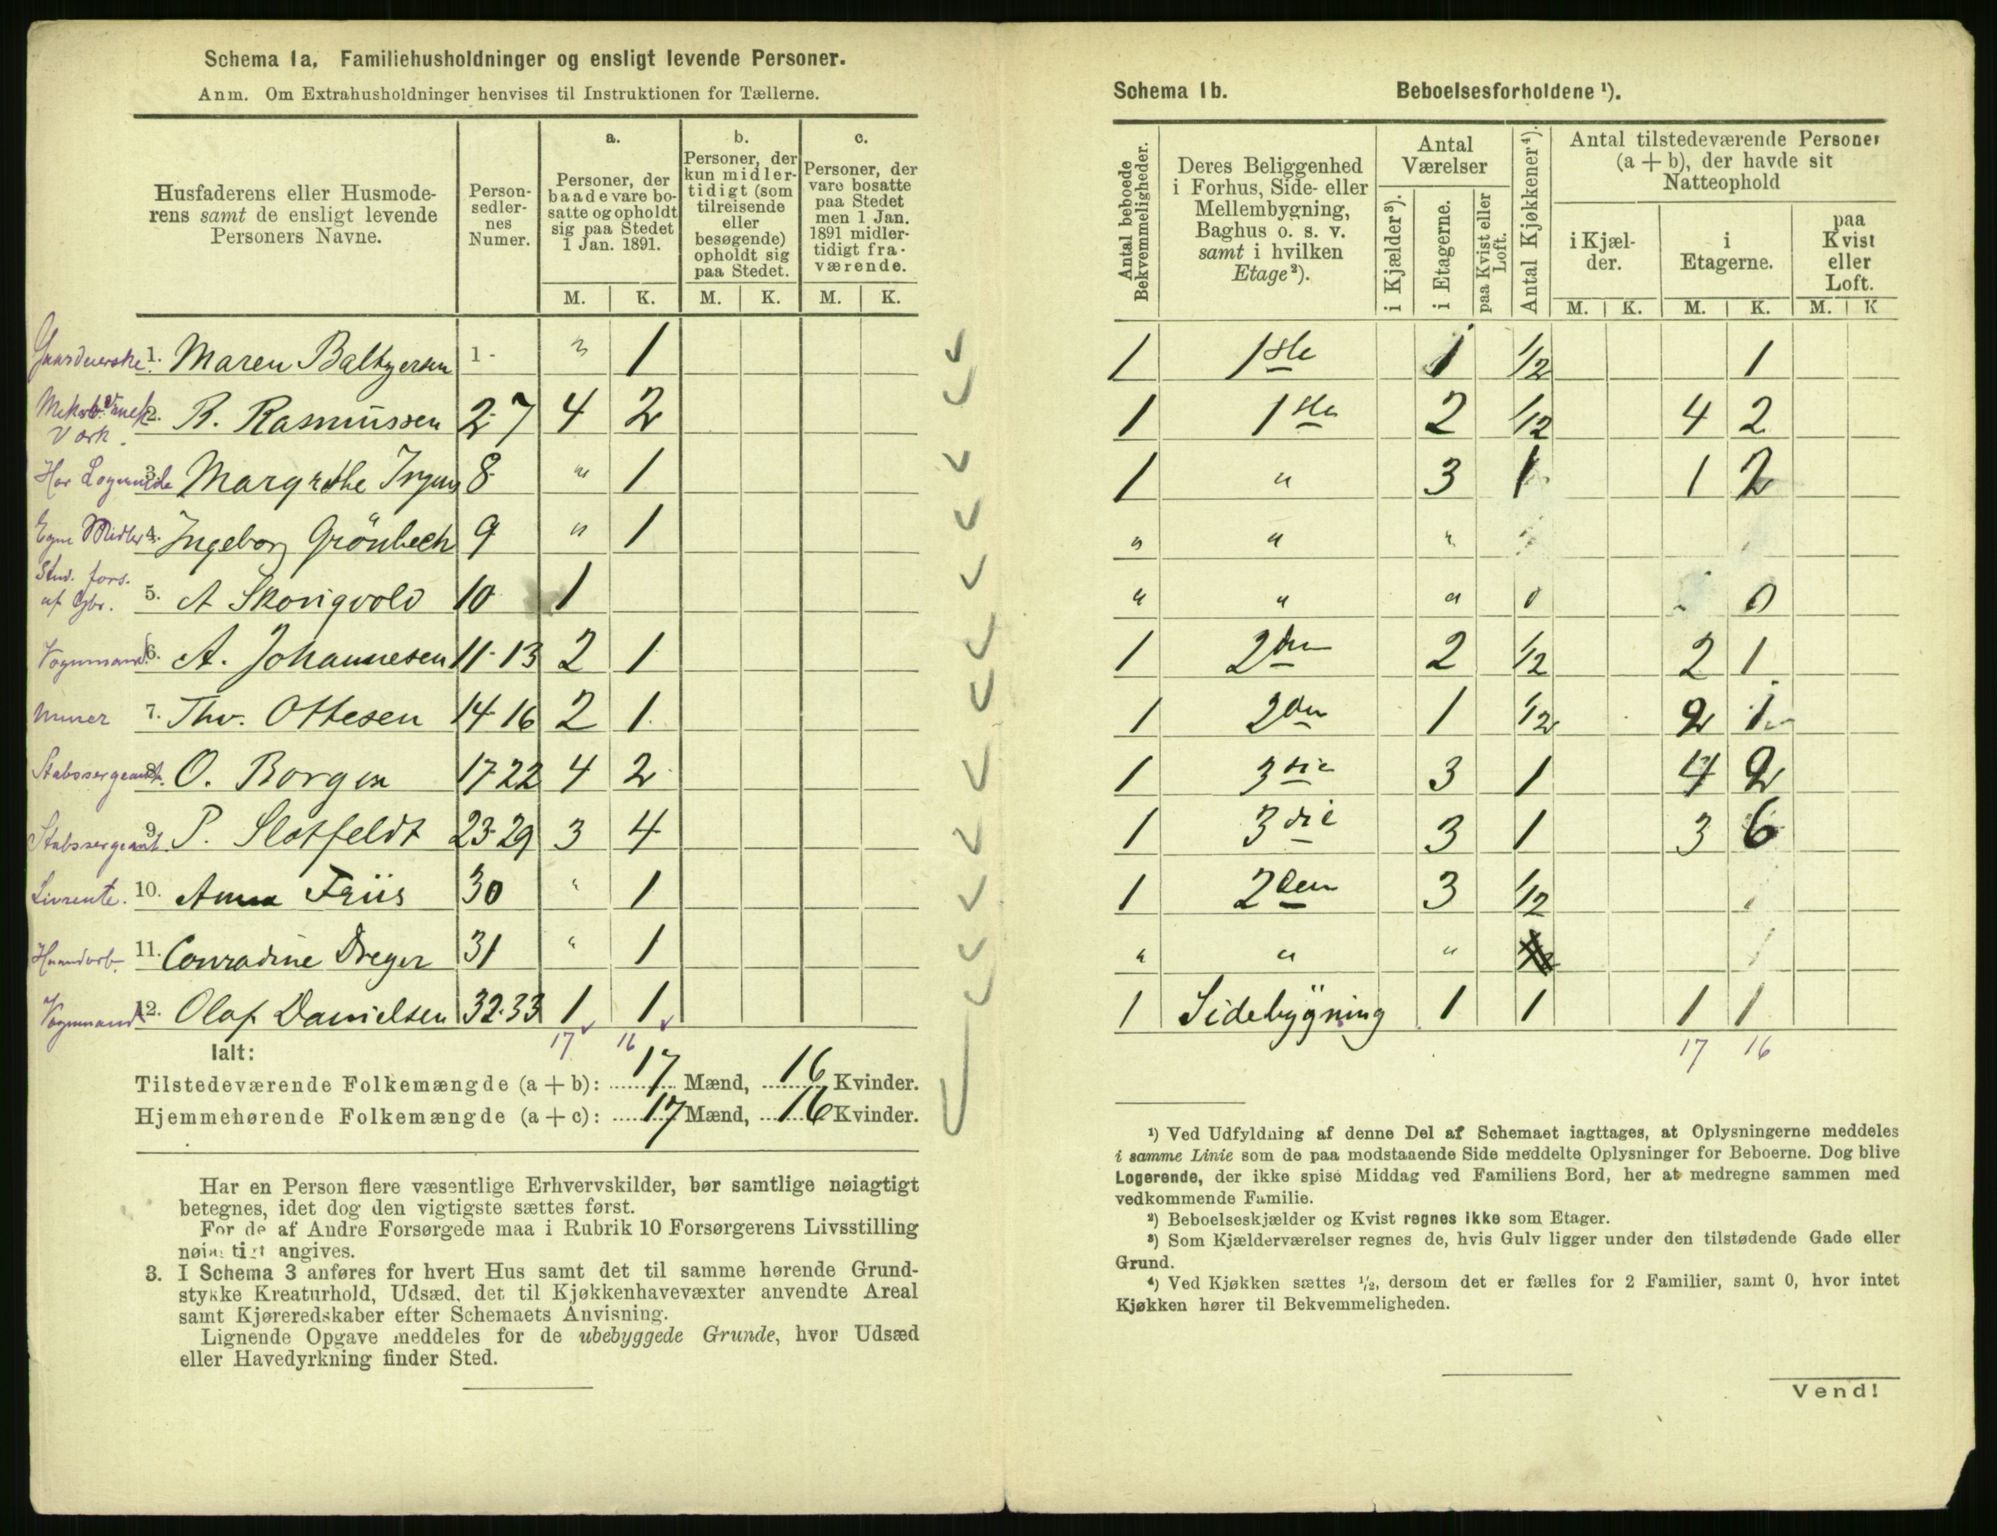 Schema 1a. Familiehusholdninger og ensligt levende Personer.
Anm. Om Extrahusholdninger henvises til Instruktionen for Tællerne.
Husfaderens eller Husmoderens samt de ensligt levende Personers Navne.
Personsedlernes Numer.
a. Personer, der baade vare bosatte og opholdt sig paa Stedet 1 Jan. 1891.
b. Personer, der kun midlertidigt (som tilreisende eller besøgende) opholdt sig paa Stedet.
c. Personer, der vare bosatte paa Stedet men 1 Jan. 1891 midlertidigt fraværende.
M. K. M. K. M. K.
1. Maren 1 - " 1
2. R. Rasmussen 2-7 4 2
3. Margrethe 8 " 1
Egne Midler 4. Ingeborg Grönbech 9 " 1
Stud. fors. af 5. A Skorigvold 10 1
Vognmand 6. A. Johannesen 11-13 2 1
Murer 7. Thv. Ottesen 14-16 2 1
Stabssergeant. 8. O. Borgen 17-22 4 2
Stabssergeant. 9. P. Slotfeldt 23-29 3 4
Livrente. 10. Anna Friis 30 " 1
Haandarb. 11. Conradine Dreyer 31 " 1
Vognmand 12. Olaf Danielsen 32-33 1 1
17 16
Ialt:
Tilstedeværende Folkemængde (a + b): 17 Mænd, 16 Kvinder.
Hjemmehørende Folkemængde (a + c): 17 Mænd, 16 Kvinder.
Har en Person flere væsentlige Erhvervskilder, bør samtlige nøiagtigt
betegnes, idet dog den vigtigste sættes først.
For de af Andre Forsørgede maa i Rubrik 10 Forsørgerens Livsstilling
nøiagtigt angives.
3. I Schema 3 anføres for hvert Hus samt det til samme hørende Grund-
stykke Kreaturhold, Udsæd, det til Kjøkkenhavevæxter anvendte Areal
samt Kjøreredskaber efter Schemaets Anvisning.
Lignende Opgave meddeles for de ubebyggede Grunde, hvor Udsæd
eller Havedyrkning finder Sted.
Schema 1b. Beboelsesforholdene ¹).
Antal beboede Bekvemmeligheder.
Deres Beliggenhed i Forhus, Side- eller Mellembygning, Baghus o. s. v. samt i hvilken Etage²).
Antal Værelser
i Kjælder³). i Etagerne. paa Kvist eller Loft.
Antal Kjøkkener⁴).
Antal tilstedeværende Personer (a + b), der havde sit Natteophold
i Kjælder. i Etagerne. paa Kvist eller Loft.
M. K. M. K. M. K
1 1ste 1 1/2 1
1 1ste 2 1/2 4 2
1 " 3 1 1 2
" " "
" " " 0 0
1 2den 2 1/2 2 1
1 2den 1 1/2 2 1
1 3die 3 1 4 2
1 3die 3 1 3 6
1 2den 3 1/2
" " "
1 Sidebygning 1 1 1 1
17 16
¹) Ved Udfyldning af denne Del af Schemaet iagttages, at Oplysningerne meddeles
i samme Linie som de paa modstaaende Side meddelte Oplysninger for Beboerne. Dog blive
Logerende, der ikke spise Middag ved Familiens Bord, her at medregne sammen med
vedkommende Familie.
²) Beboelseskjælder og Kvist regnes ikke som Etager.
³) Som Kjælderværelser regnes de, hvis Gulv ligger under den tilstødende Gade eller
Grund.
⁴) Ved Kjøkken sættes ½, dersom det er fælles for 2 Familier, samt 0, hvor intet
Kjøkken hører til Bekvemmeligheden.
Vend!